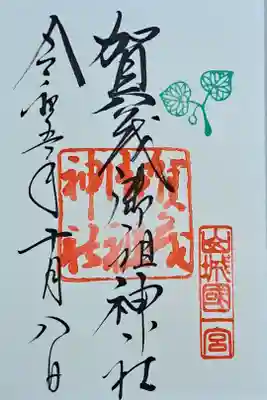 山城國
一宮
賀茂御祖神社
賀茂御祖神社
令和五年十月八日